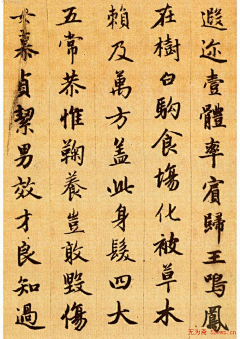 遐迩壹體率賓歸王鳴鳳
在樹白駒食場化被草木
賴及萬方盖此身髮四大
五常恭惟鞠養豈敢毀傷
女慕貞絜男效才良知過